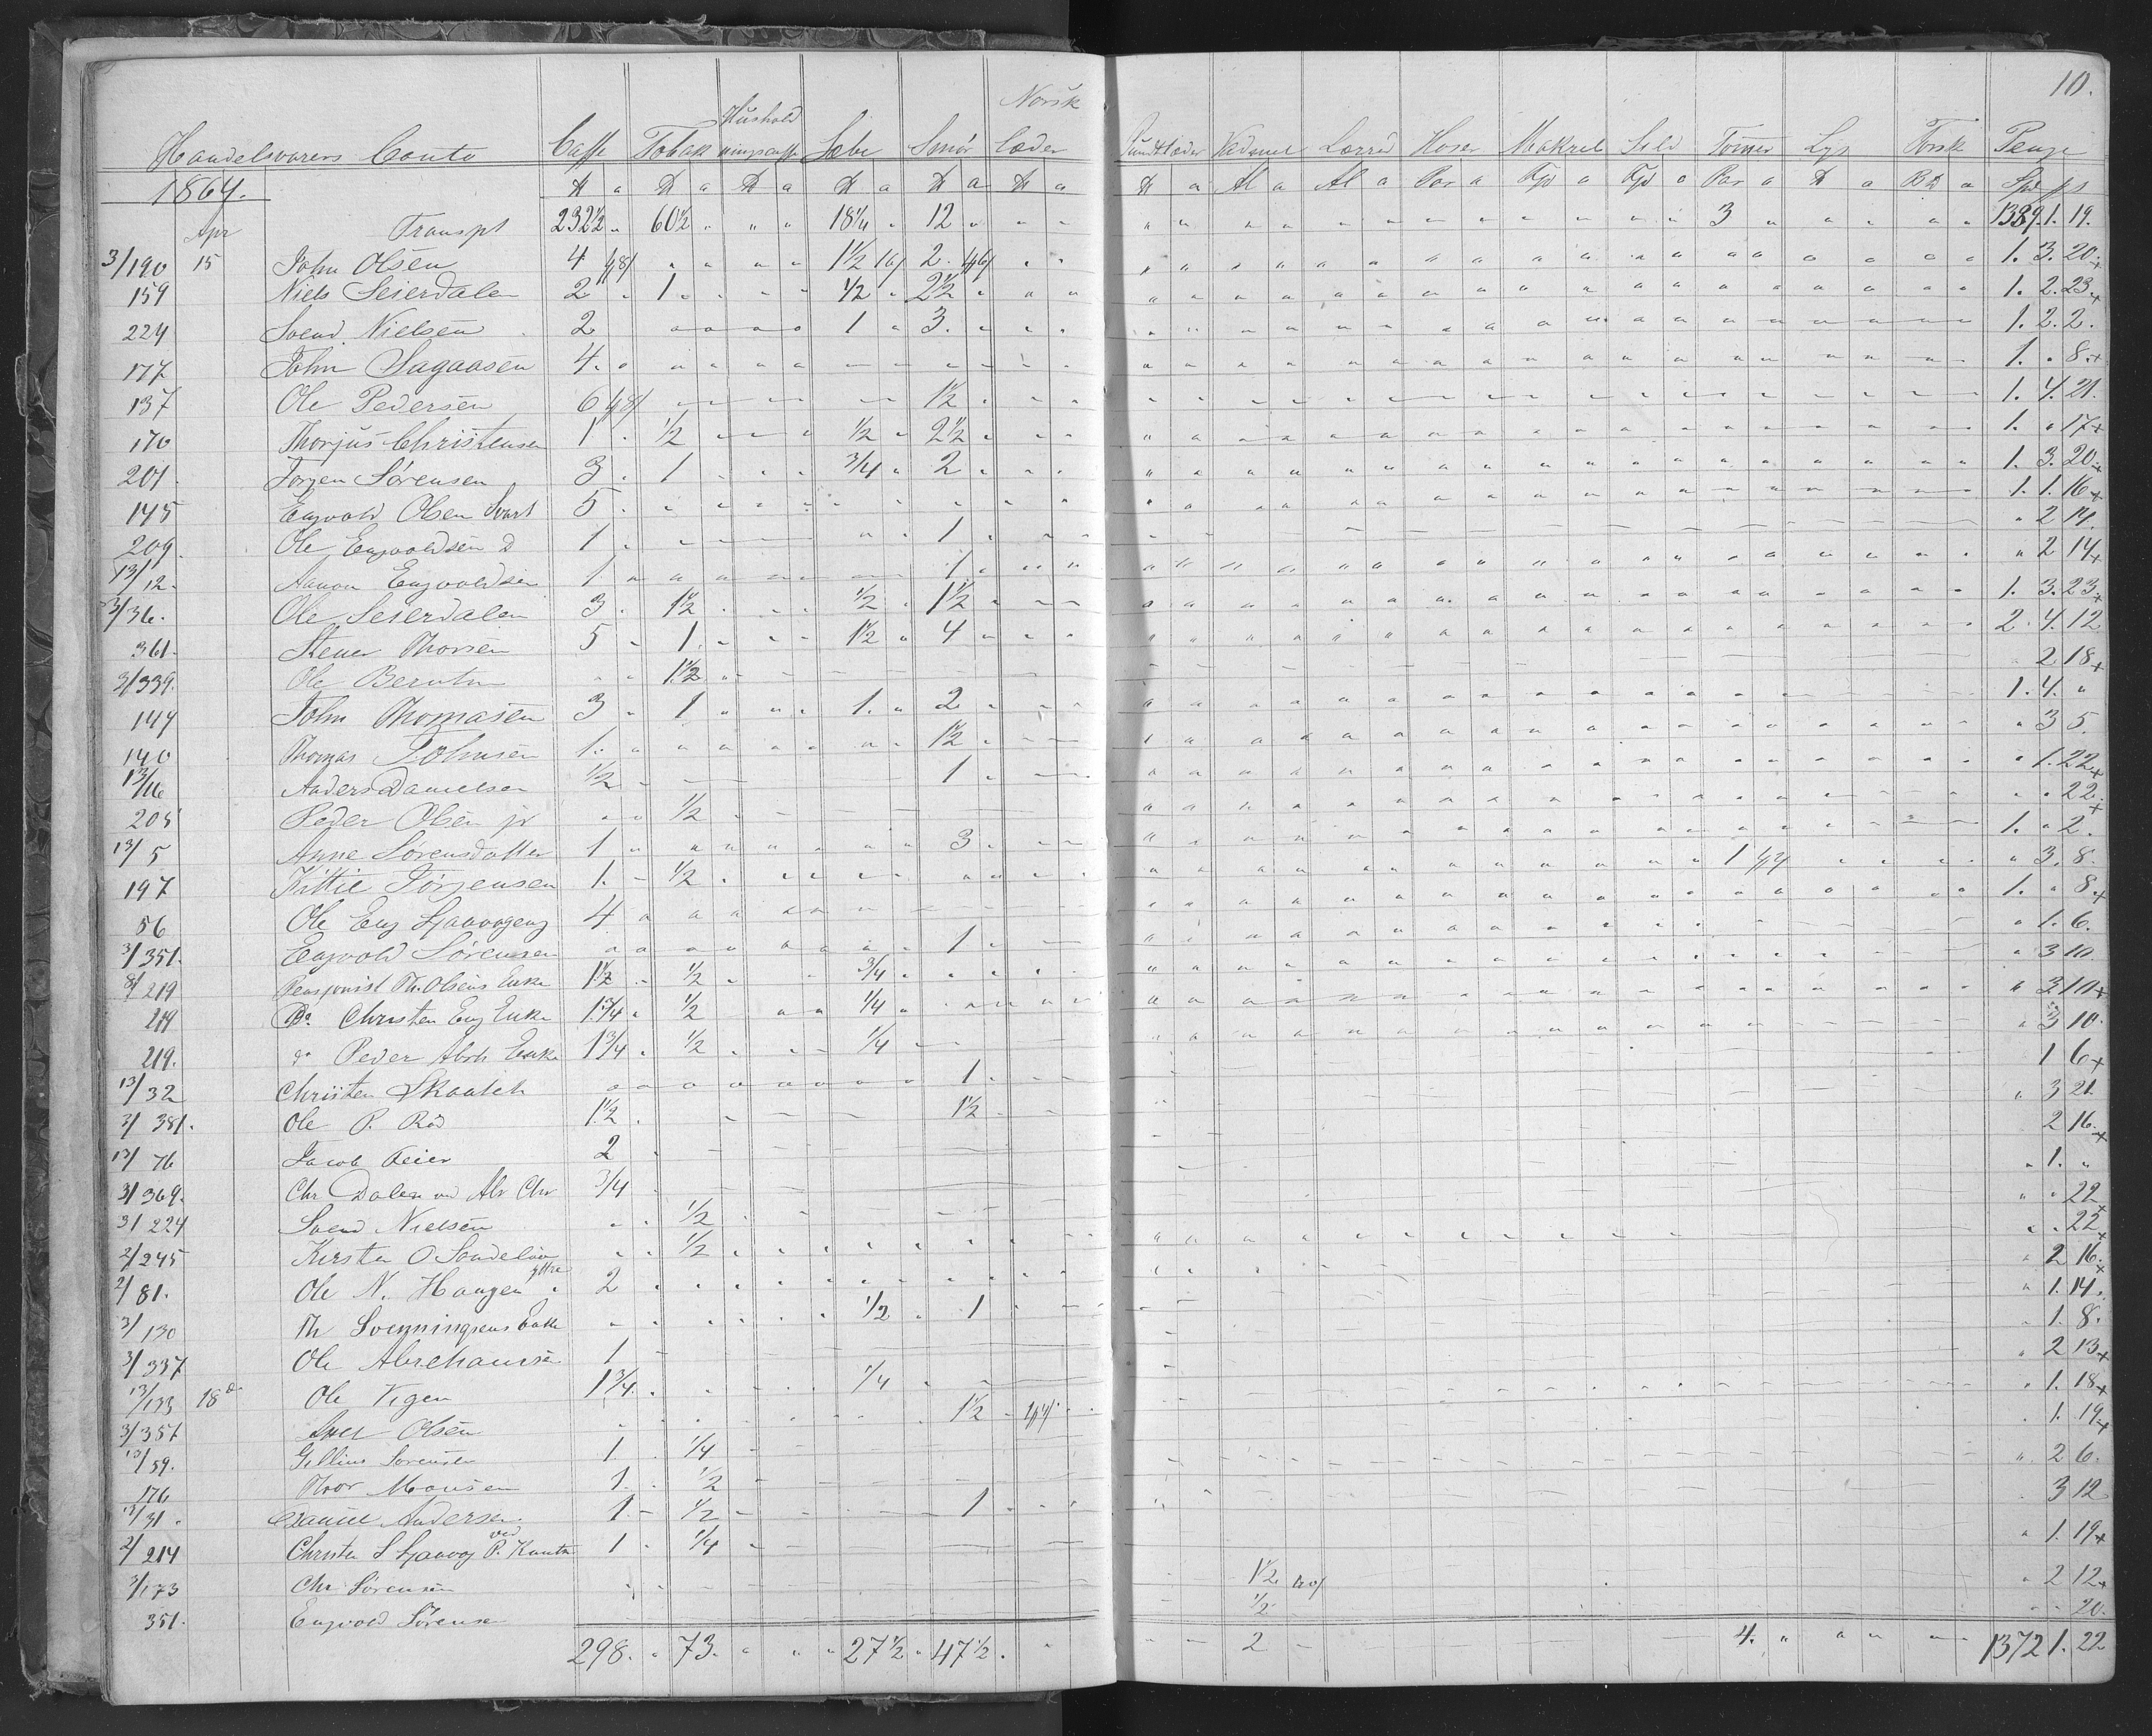 10.
Handelsvarers Conto Caffe Tobak Hushold ningscaffe Sæbe Smør Norsk Læder Vadmel Lærred Hoser Makrel Sild Tømer Lys Torsk Penge
1864. ℔ a ℔ a ℔ a ℔ a ℔ a ℔ a ℔ a Al a Al a Par a a a Par a ℔ a a Spd
Apr Transpt 232½ 60½ 18¼ 12 3 1389.1.19.
3/190 15 John Olsen 4 48/ 1½ 16/ 2. 46/ 1. 3. 20. +
159 Niels Seierdalen 2 1 ½ 2½ 1. 2. 23 +
224 Svend Nielsen 2 1 3. 1. 2. 2.
177 John Hagaasen 4. 1. 8. +
137 Ole Pedersen 6 48/ 1½ 1. 4. 21.
170 Thorjus Christensen 1 ½ ½ 2½ 1. 17 +
201. Jørgen Sørensen 3. 1 ¾ 2 1. 3. 20. +
145 Engvold Olsen Svart 5. 1. 1. 16 +
209. Ole Engvoldsen D 1 1 2 14.
13/12. Aanon Engvoldsen 1 1 2 14 +
3/36. Ole Seierdalen 3. 1½ ½ 1½ 1. 3. 23 +
361. Stener Thorsen 5 1. 1½ 4 2. 4. 12
3/339. Ole Berntn 1½ 2 18 +
149 John Thomasen 3 1 1. 2 1. 4.
140 Thomas Johnsen 1. 1½ 3 5.
13/16 Anders Danielsen ½ 1 1. 22 +
205 Peder Olsen jr ½ 22. +
13/5 Anne Sørensdatter 1 3 1. 2.
197 Kittil Jørgensen 1. ½ 1 3. 8.
56 Ole Eng 4 1. 8 +
3/351. Engvold Sørensen 1 1. 6.
8/219 Pensjonist Th. Olsens Enke 1½ ½ ¾ 3 10
219 Do Christen Eng Enke 1¾ ½ ¼ 3 10 +
219. do Peder Abrh Enke 1¾ ½ ¼ 3 10.
13/32 Christen Skaateh 1 1 6 +
3/381. Ole P. Rød 1½ 1½ 3 21.
13/76 Jacob Oeier 2 2 16. +
3/369. Chr Dalen ved Abr Chr ¾ 1.
3/224 Svend Nielsen ½ 22 +
2/245 Kersten O Sandeløv ½ 22 +
2/81. Ole N. Haugen yttre 2 2 16. +
3/130 Th Svenningsens Enke ½ 1 1. 14.
3/337 Ole Abrehamsen 1 1. 8.
13/133 18d Ole Vegen 1¾ ¼ 2 13 +
3/357 Iver Olsen 1½ 1. 18 +
13/59. Gellius Sørensen 1 ¼ 1. 19 +
176 Thor Monsen 1. ½ 2 6.
13/31. Daniel Andersen 1 ½ 1 3 12
2/214 Christen S ved P. Knuts 1 ¼ 1. 19 +
3/173 Chr Sørensen 1½ 2 12 +
351. Engvold Sørensen ½ 20.
298. 73. 27½ 47½. 2 4. 1372 1. 22